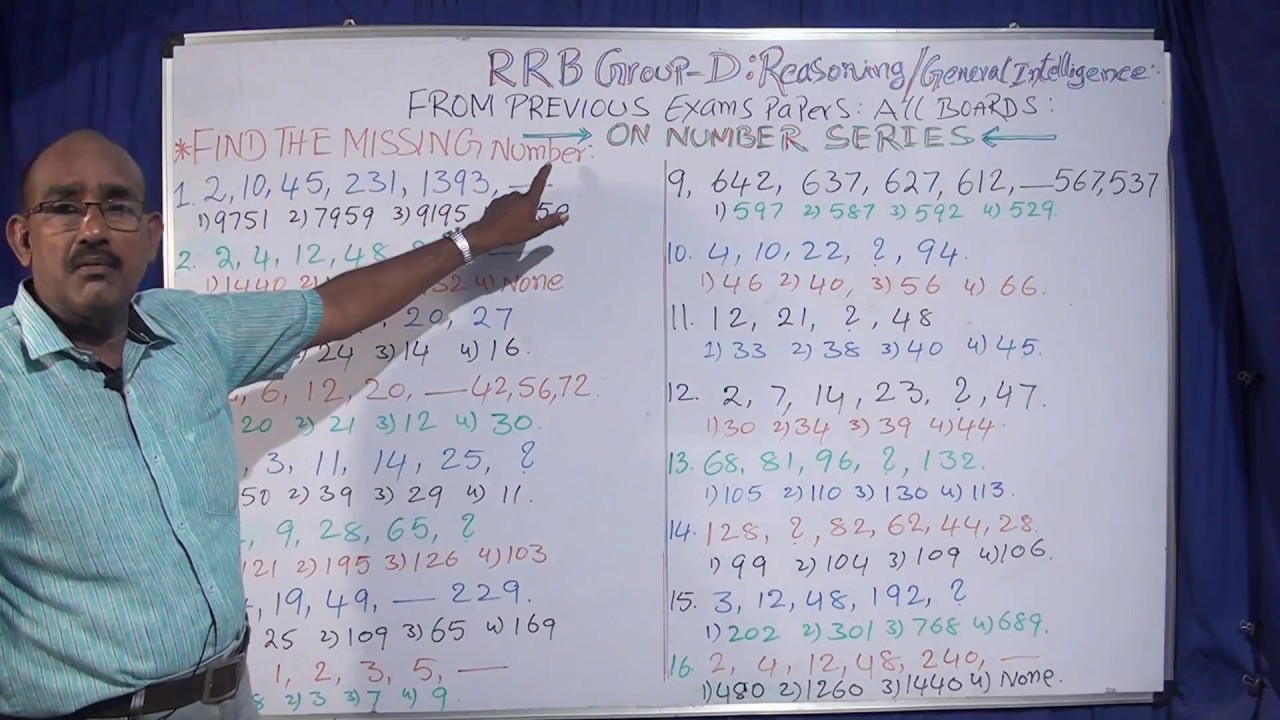 RRB Group-D: Reasoning/General Intelligence:
FROM PREVIOUS Exams Papers: All BOARDS:
*FIND THE MISSING Number: ON NUMBER SERIES
1. 2, 10, 45, 231, 1393, —
1) 9751 2) 7959 3) 9195 50
2. 2, 4, 12, 48
1) 1440 2) 4) None
20, 27
24 3) 14 4) 16.
6, 12, 20, — 42, 56, 72.
20 2) 21 3) 12 4) 30.
3, 11, 14, 25, ?
50 2) 39 3) 29 4) 11.
9, 28, 65, ?
121 2) 195 3) 126 4) 103
19, 49, — 229.
25 2) 109 3) 65 4) 169
1, 2, 3, 5, —
2) 3 3) 7 4) 9.
9, 642, 637, 627, 612, — 567, 537
1) 597 2) 587 3) 592 4) 529.
10. 4, 10, 22, ?, 94.
1) 46 2) 40, 3) 56 4) 66.
11. 12, 21, ?, 48
1) 33 2) 38 3) 40 4) 45.
12. 2, 7, 14, 23, ?, 47.
1) 30 2) 34 3) 39 4) 44.
13. 68, 81, 96, ?, 132.
1) 105 2) 110 3) 130 4) 113.
14. 128, ?, 82, 62, 44, 28.
1) 99 2) 104 3) 109 4) 106.
15. 3, 12, 48, 192, ?
1) 202 2) 301 3) 768 4) 689.
16. 2, 4, 12, 48, 240, —
1) 480 2) 1260 3) 1440 4) None.